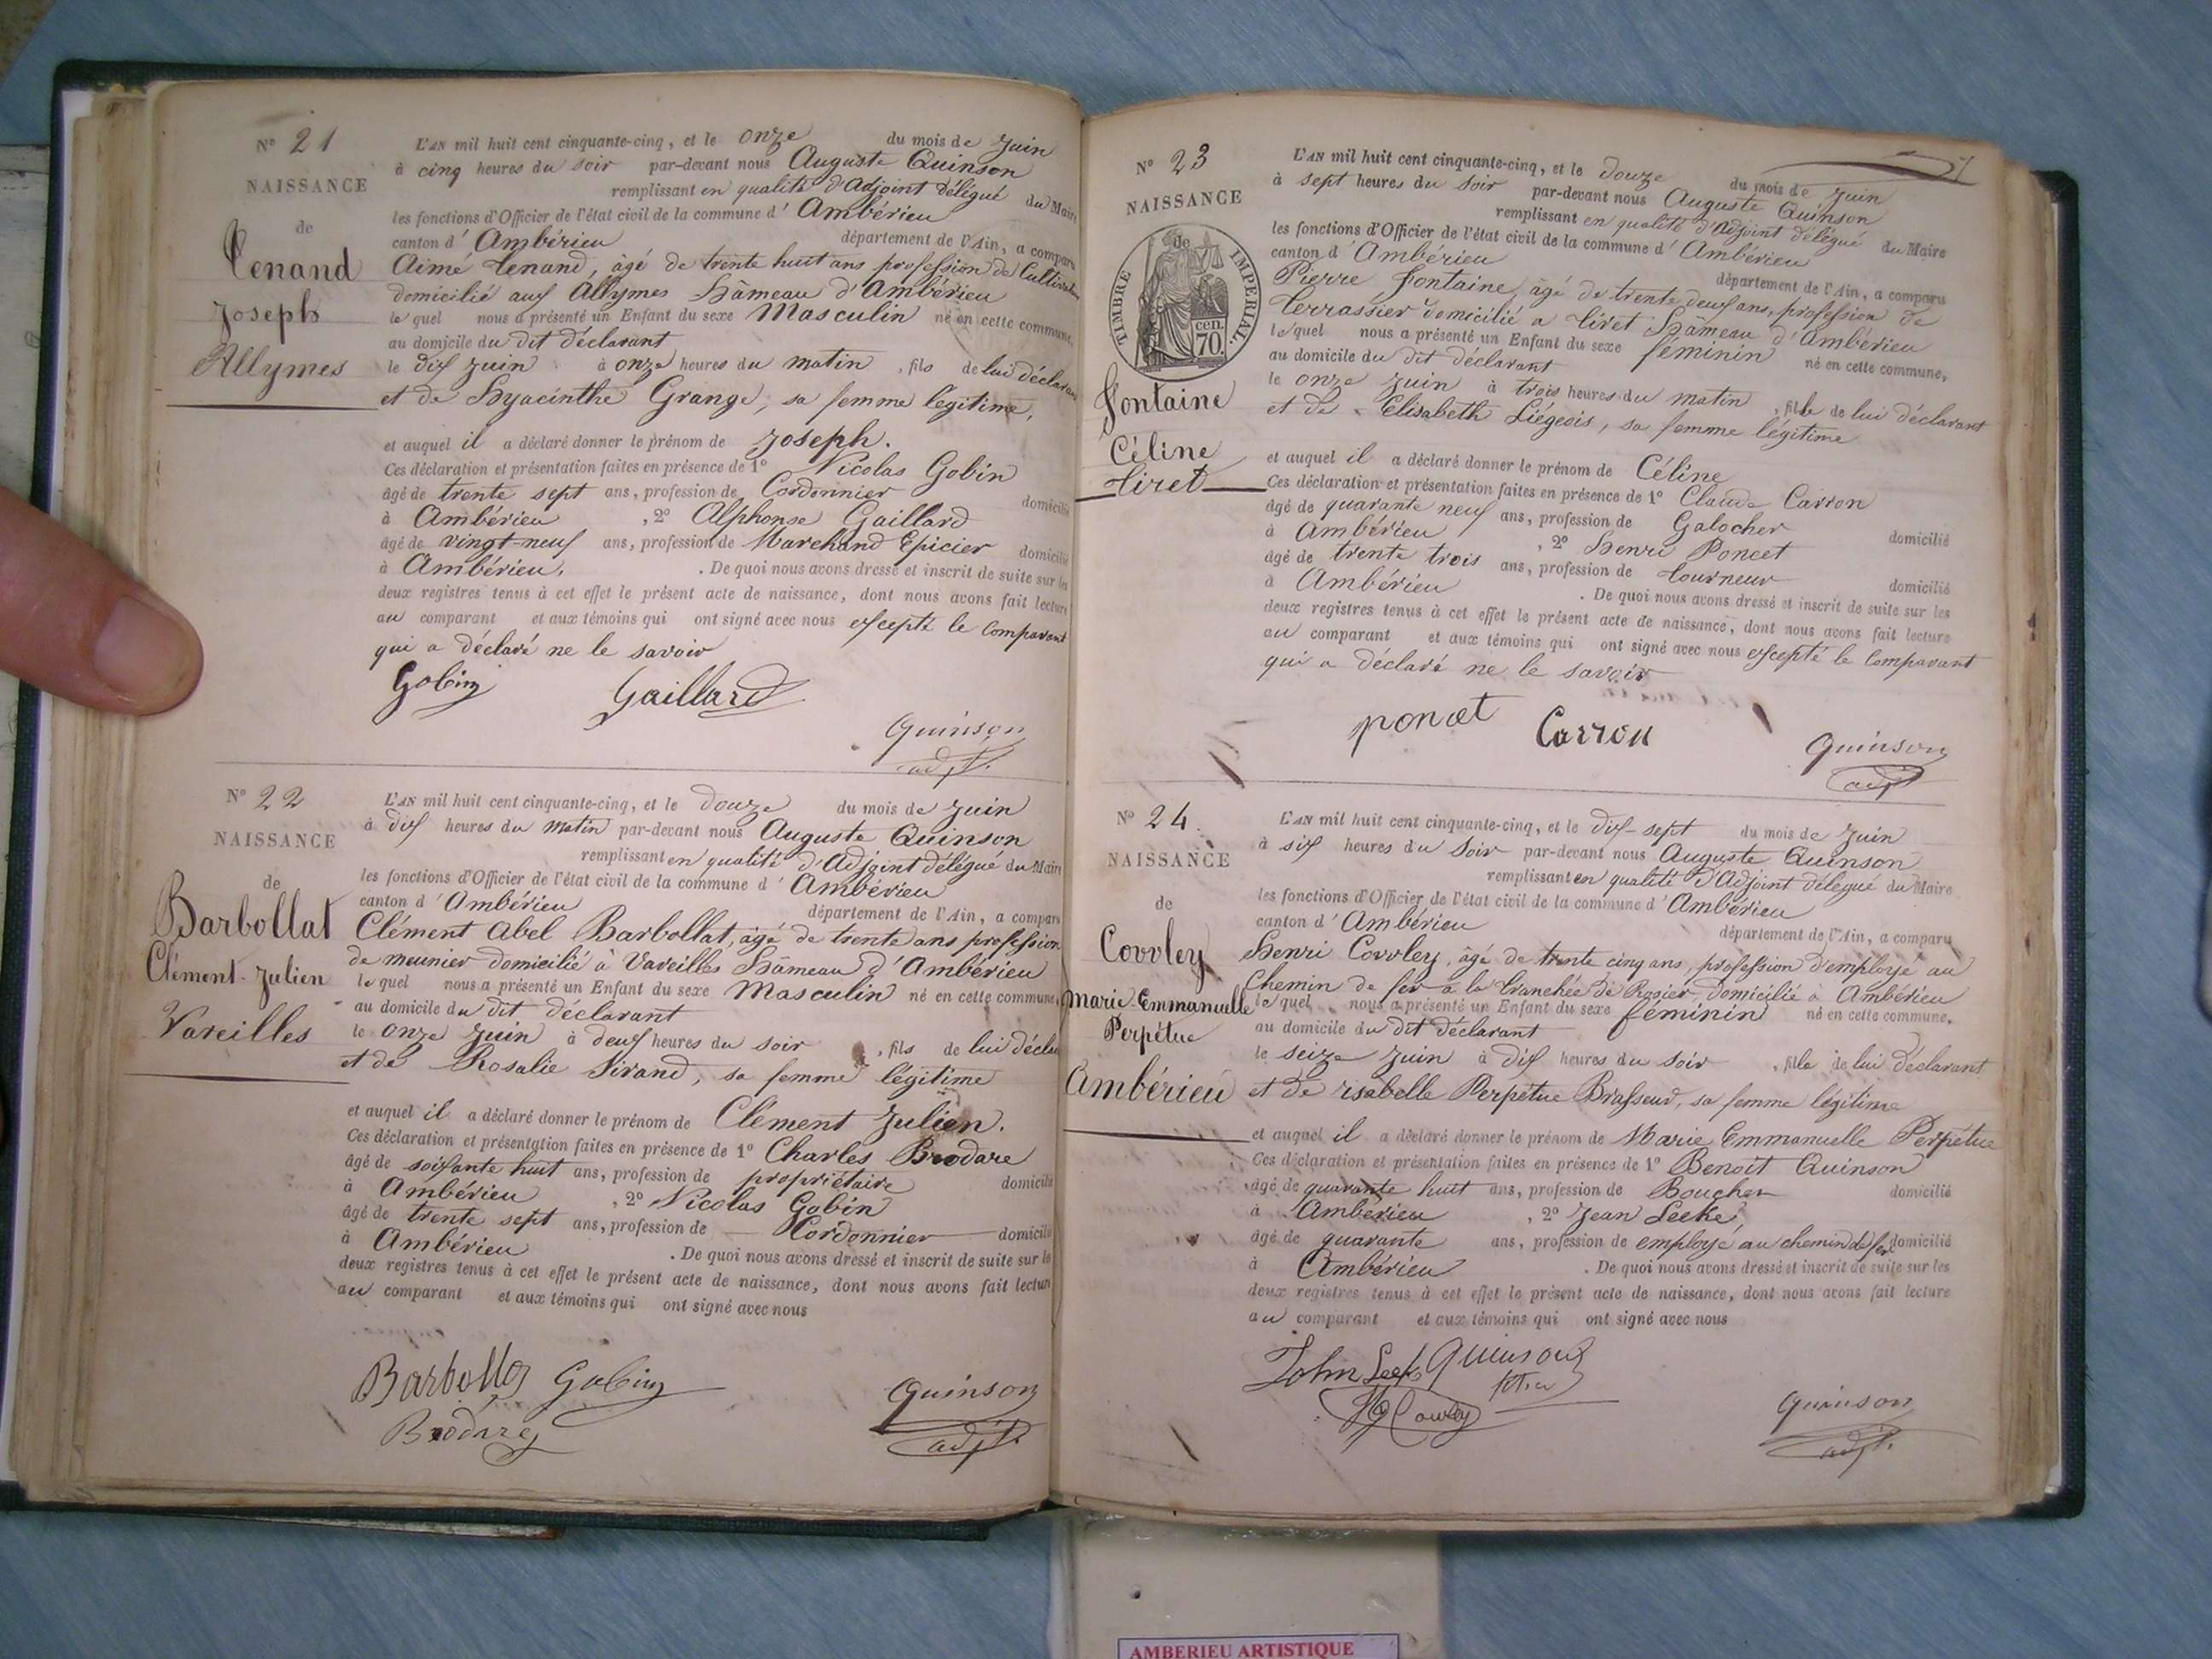 N° 21
NAISSANCE
de
Tenand
Joseph
Allymes
L'AN mil huit cent cinquante-cinq, et le onze du mois de Juin
à cinq heures du soir par-devant nous Auguste Quinson
remplissant en qualité d'Adjoint délégué du Maire
les fonctions d'Officier de l'état civil de la commune d' Ambérieu
canton d' Ambérieu département de l'Ain, a comparu
Aimé Tenand, âgé de trente huit ans profession de Cultivateur
domicilié aux Allymes hâmeau d'Ambérieu
le quel nous a présenté un Enfant du sexe Masculin né en cette commune,
au domicile du dit déclarant
le dix Juin à onze heures du matin, fils de lui déclarant
et de Hyacinthe Grange, sa femme légitime,
et auquel il a déclaré donner le prénom de Joseph.
Ces déclaration et présentation faites en présence de 1° Nicolas Gobin
âgé de trente sept ans, profession de Cordonnier domicilié
à Ambérieu, 2° Alphonse Gaillard
âgé de vingt-neuf ans, profession de Marchand Epicier domicilié
à Ambérieu. . De quoi nous avons dressé et inscrit de suite sur les
deux registres tenus à cet effet le présent acte de naissance, dont nous avons fait lecture
au comparant et aux témoins qui ont signé avec nous excepté le Comparant
qui a déclaré ne le savoir
Gobin Gaillard
Quinson
adjt.
N° 22
NAISSANCE
de
Barbollat
Clément-Julien
Vareilles
L'AN mil huit cent cinquante-cinq, et le douze du mois de Juin
à dix heures du matin par-devant nous Auguste Quinson
remplissant en qualité d'Adjoint délégué du Maire
les fonctions d'Officier de l'état civil de la commune d' Ambérieu
canton d' Ambérieu département de l'Ain, a comparu
Clément Abel Barbollat, âgé de trente ans profession
de meunier domicilié à Vareilles hâmeau d'Ambérieu
le quel nous a présenté un Enfant du sexe Masculin né en cette commune,
au domicile du dit déclarant
le onze Juin à deux heures du soir, fils de lui décla
et de Rosalie Sirand, sa femme légitime
et auquel il a déclaré donner le prénom de Clément Julien.
Ces déclaration et présentation faites en présence de 1° Charles Brodare
âgé de soixante huit ans, profession de propriétaire domicilié
à Ambérieu, 2° Nicolas Gobin
âgé de trente sept ans, profession de Cordonnier domicilié
à Ambérieu . De quoi nous avons dressé et inscrit de suite sur les
deux registres tenus à cet effet le présent acte de naissance, dont nous avons fait lecture
au comparant et aux témoins qui ont signé avec nous
Gobin
Brodare
Quinson
adjt.
7
N° 23
NAISSANCE
de
TIMBRE IMPERIAL.
cen.
70.
Fontaine
Céline
Tiret
L'AN mil huit cent cinquante-cinq, et le douze du mois de Juin
à sept heures du soir par-devant nous Auguste Quinson
remplissant en qualité d'Adjoint délégué du Maire
les fonctions d'Officier de l'état civil de la commune d' Ambérieu
canton d' Ambérieu département de l'Ain, a comparu
Pierre Fontaine, âgé de trente deux ans, profession de
terrassier domicilié a Tiret hâmeau d'Ambérieu
le quel nous a présenté un Enfant du sexe féminin né en cette commune,
au domicile du dit déclarant
le onze Juin à trois heures du matin, fille de lui déclarant
et de Elisabeth Liégeois, sa femme légitime
et auquel il a déclaré donner le prénom de Céline
Ces déclaration et présentation faites en présence de 1° Claude Carron
âgé de quarante neuf ans, profession de Galocher domicilié
à Ambérieu, 2° Henri Poncet
âgé de trente trois ans, profession de tourneur domicilié
à Ambérieu . De quoi nous avons dressé et inscrit de suite sur les
deux registres tenus à cet effet le présent acte de naissance, dont nous avons fait lecture
au comparant et aux témoins qui ont signé avec nous excepté le Comparant
qui a déclaré ne le savoir
poncet Carron
Quinson
adjt
N° 24
NAISSANCE
de
Covvley
Marie Emmanuelle
Perpétue
Ambérieu
L'AN mil huit cent cinquante-cinq, et le dix-sept du mois de Juin
à six heures du soir par-devant nous Auguste Quinson
remplissant en qualité d'Adjoint délégué du Maire
les fonctions d'Officier de l'état civil de la commune d' Ambérieu
canton d' Ambérieu département de l'Ain, a comparu
Henri Covvley, âgé de trente cinq ans, profession d'employé au
Chemin de fer a la tranchée de Rosier, domicilié à Ambérieu
le quel nous a présenté un Enfant du sexe féminin né en cette commune,
au domicile du dit déclarant
le seize Juin à dix heures du soir, fille de lui déclarant
et de Isabelle Perpétue Brasseur, sa femme légitime
et auquel il a déclaré donner le prénom de Marie Emmanuelle Perpétue
Ces déclaration et présentation faites en présence de 1° Benoit Quinson
âgé de quarante huit ans, profession de Boucher domicilié
à Ambérieu, 2° Jean Leeke,
âgé de quarante ans, profession de employé au chemin de fer domicilié
à Ambérieu . De quoi nous avons dressé et inscrit de suite sur les
deux registres tenus à cet effet le présent acte de naissance, dont nous avons fait lecture
au comparant et aux témoins qui ont signé avec nous
John Leeke Quinson
Quinson
adjt.
AMBERIEU ARTISTIQUE